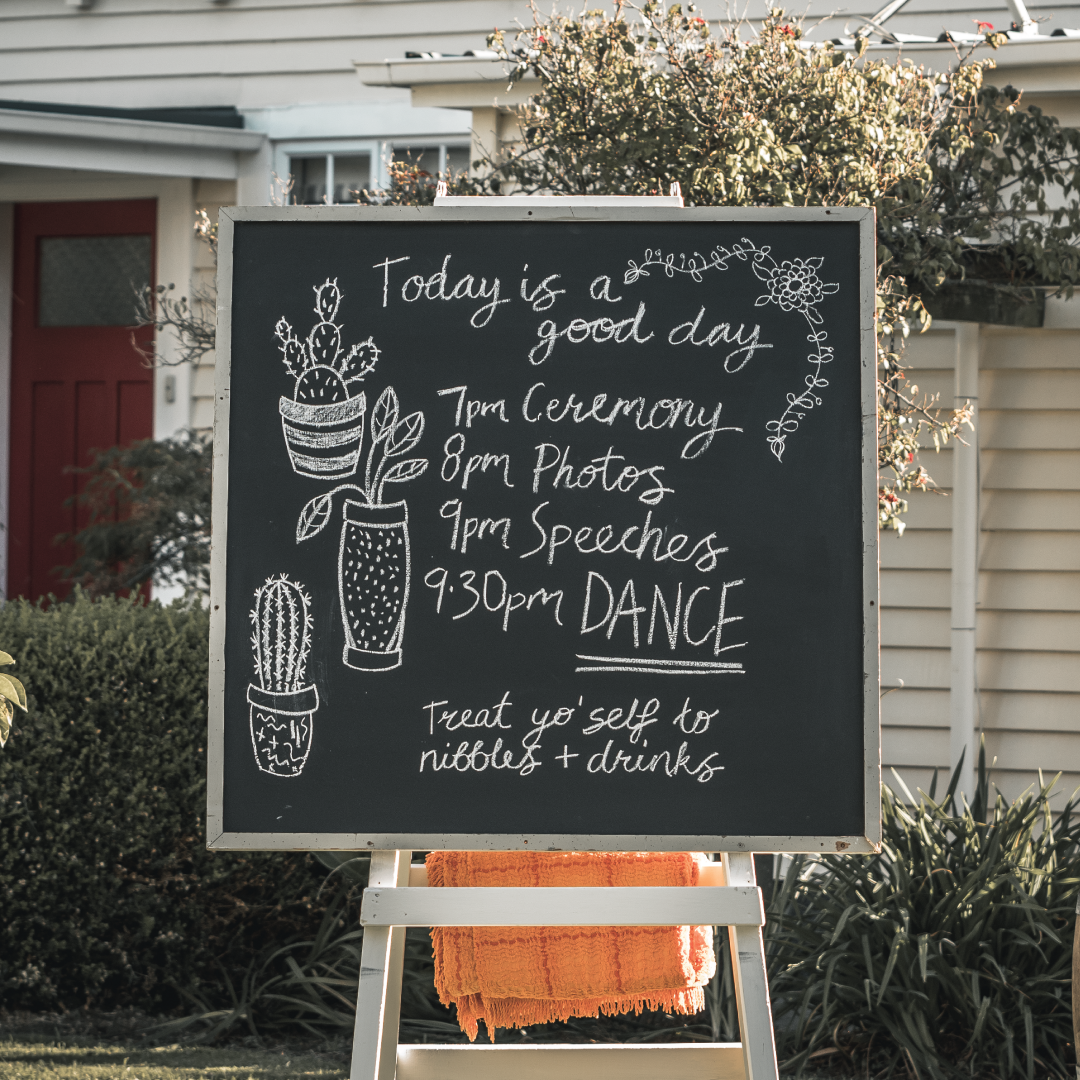 Today is a
good day
7pm Ceremony
8pm Photos
9pm Speeches
9.30pm DANCE
Treat yo'self to
nibbles + drinks